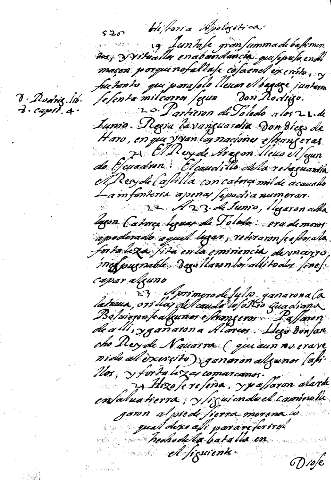 520 Historia Apologetica.
19 Juntose gran summa de bastimen
tos, y vitualla en abundancia
maçen porque no faltase cosa en el exercito, y
fue tanto que para solo llevar el bagaje juntaron
sesenta mil carros segun Don Rodrigo.
D. Rodrig. lib.
8. capit. 4.
20 Partieron de Toledo a los 21. de
Junio. Regia la vanguardia Don Diego de
Haro, en que yvan las naciones estrangeras
21 El Rey de Aragon llevo el segun
do Escuadron. El caudillo de la retaguardia
el Rey de Castilla con catorze mil de acavallo
la infanteria apenas se podia numerar.
22 A 23 de Junio, llegaron a
lugar de Toledo. era de moros
apoderado aquel lugar, retiraronse a la
fortaleza, sita en la eminencia de un cerro
inexpugnable. degollaronlos a todos sin es
capar alguno
23 A primero de Julio ganaron Ca
latrava, orillas del caudaloso Rio Guadiana
Bolvieronse algunos estrangeros. Passaron
de alli, y ganaron a Alarcos. Llego Don San
cho Rey de Navarra (que aun no era ve
nido al exercito) ganaron algunos casti
llos, y fortalezas comarcanas.
24 Hizose reseña, y passaron alarde
en salvatierra, y siguiendo el camino lle
garon al pie de sierra morena lo
qual dexo assi para referir el
hecho de la batalla en
el siguiente.
Diose